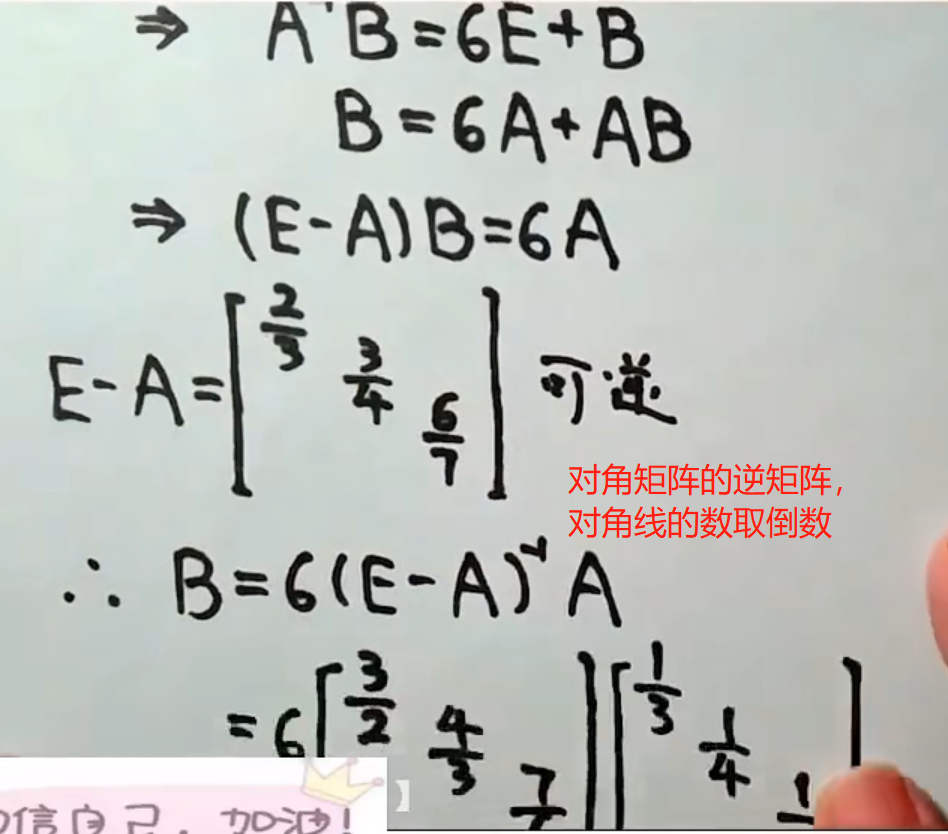 ⇒ A⁻¹B=6E+B
B=6A+AB
⇒ (E-A)B=6A
E-A=[2/3 3/4 6/7] 可逆
对角矩阵的逆矩阵，
对角线的数取倒数
∴ B=6(E-A)⁻¹A
=6[3/2 4/3 7/ ][1/3 1/4 1/ ]
信自己，加油！